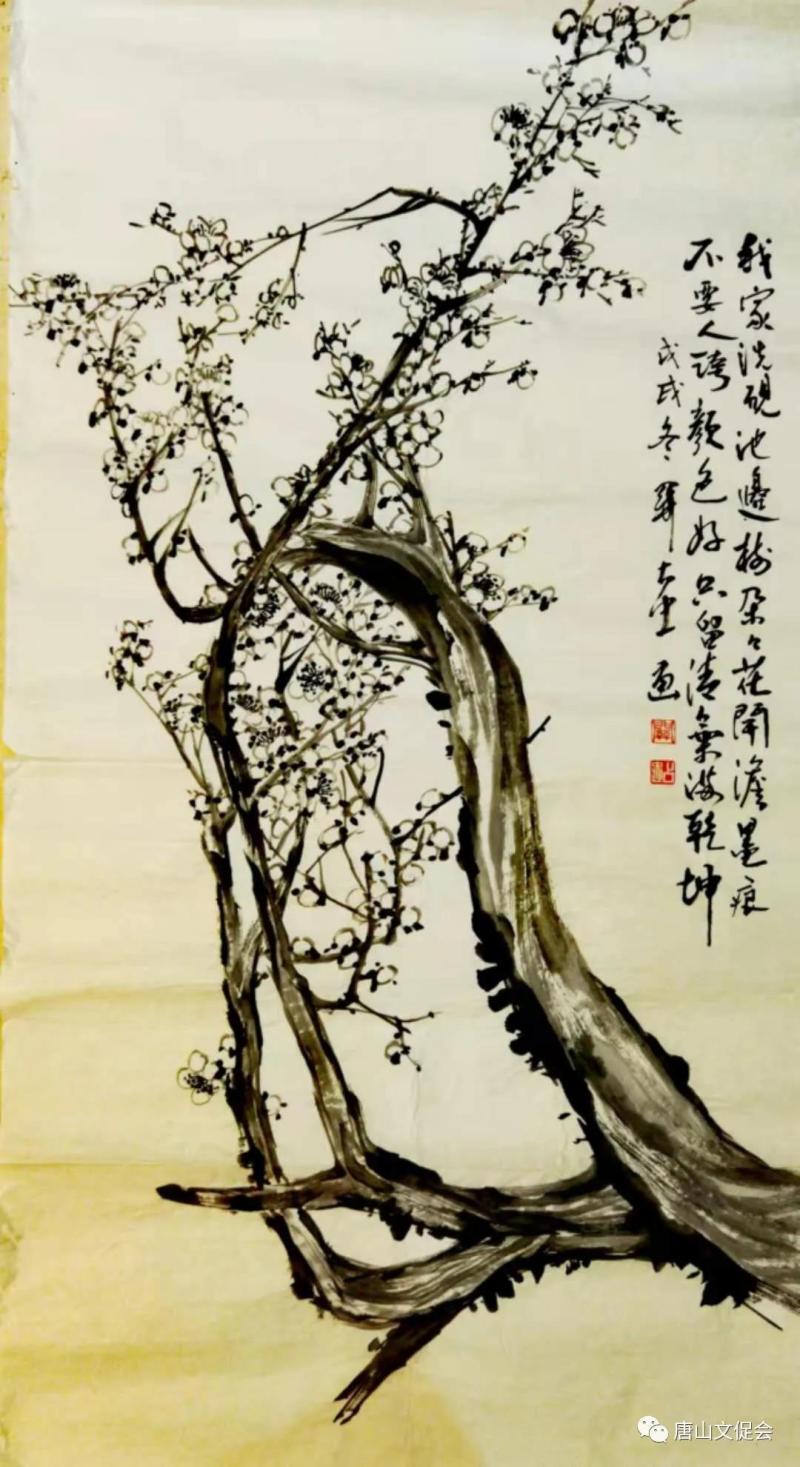 我家洗砚池邊树朶々花開澹墨痕
不要人誇颜色好只留清氣满乾坤
戊戌冬 画
唐山文促会